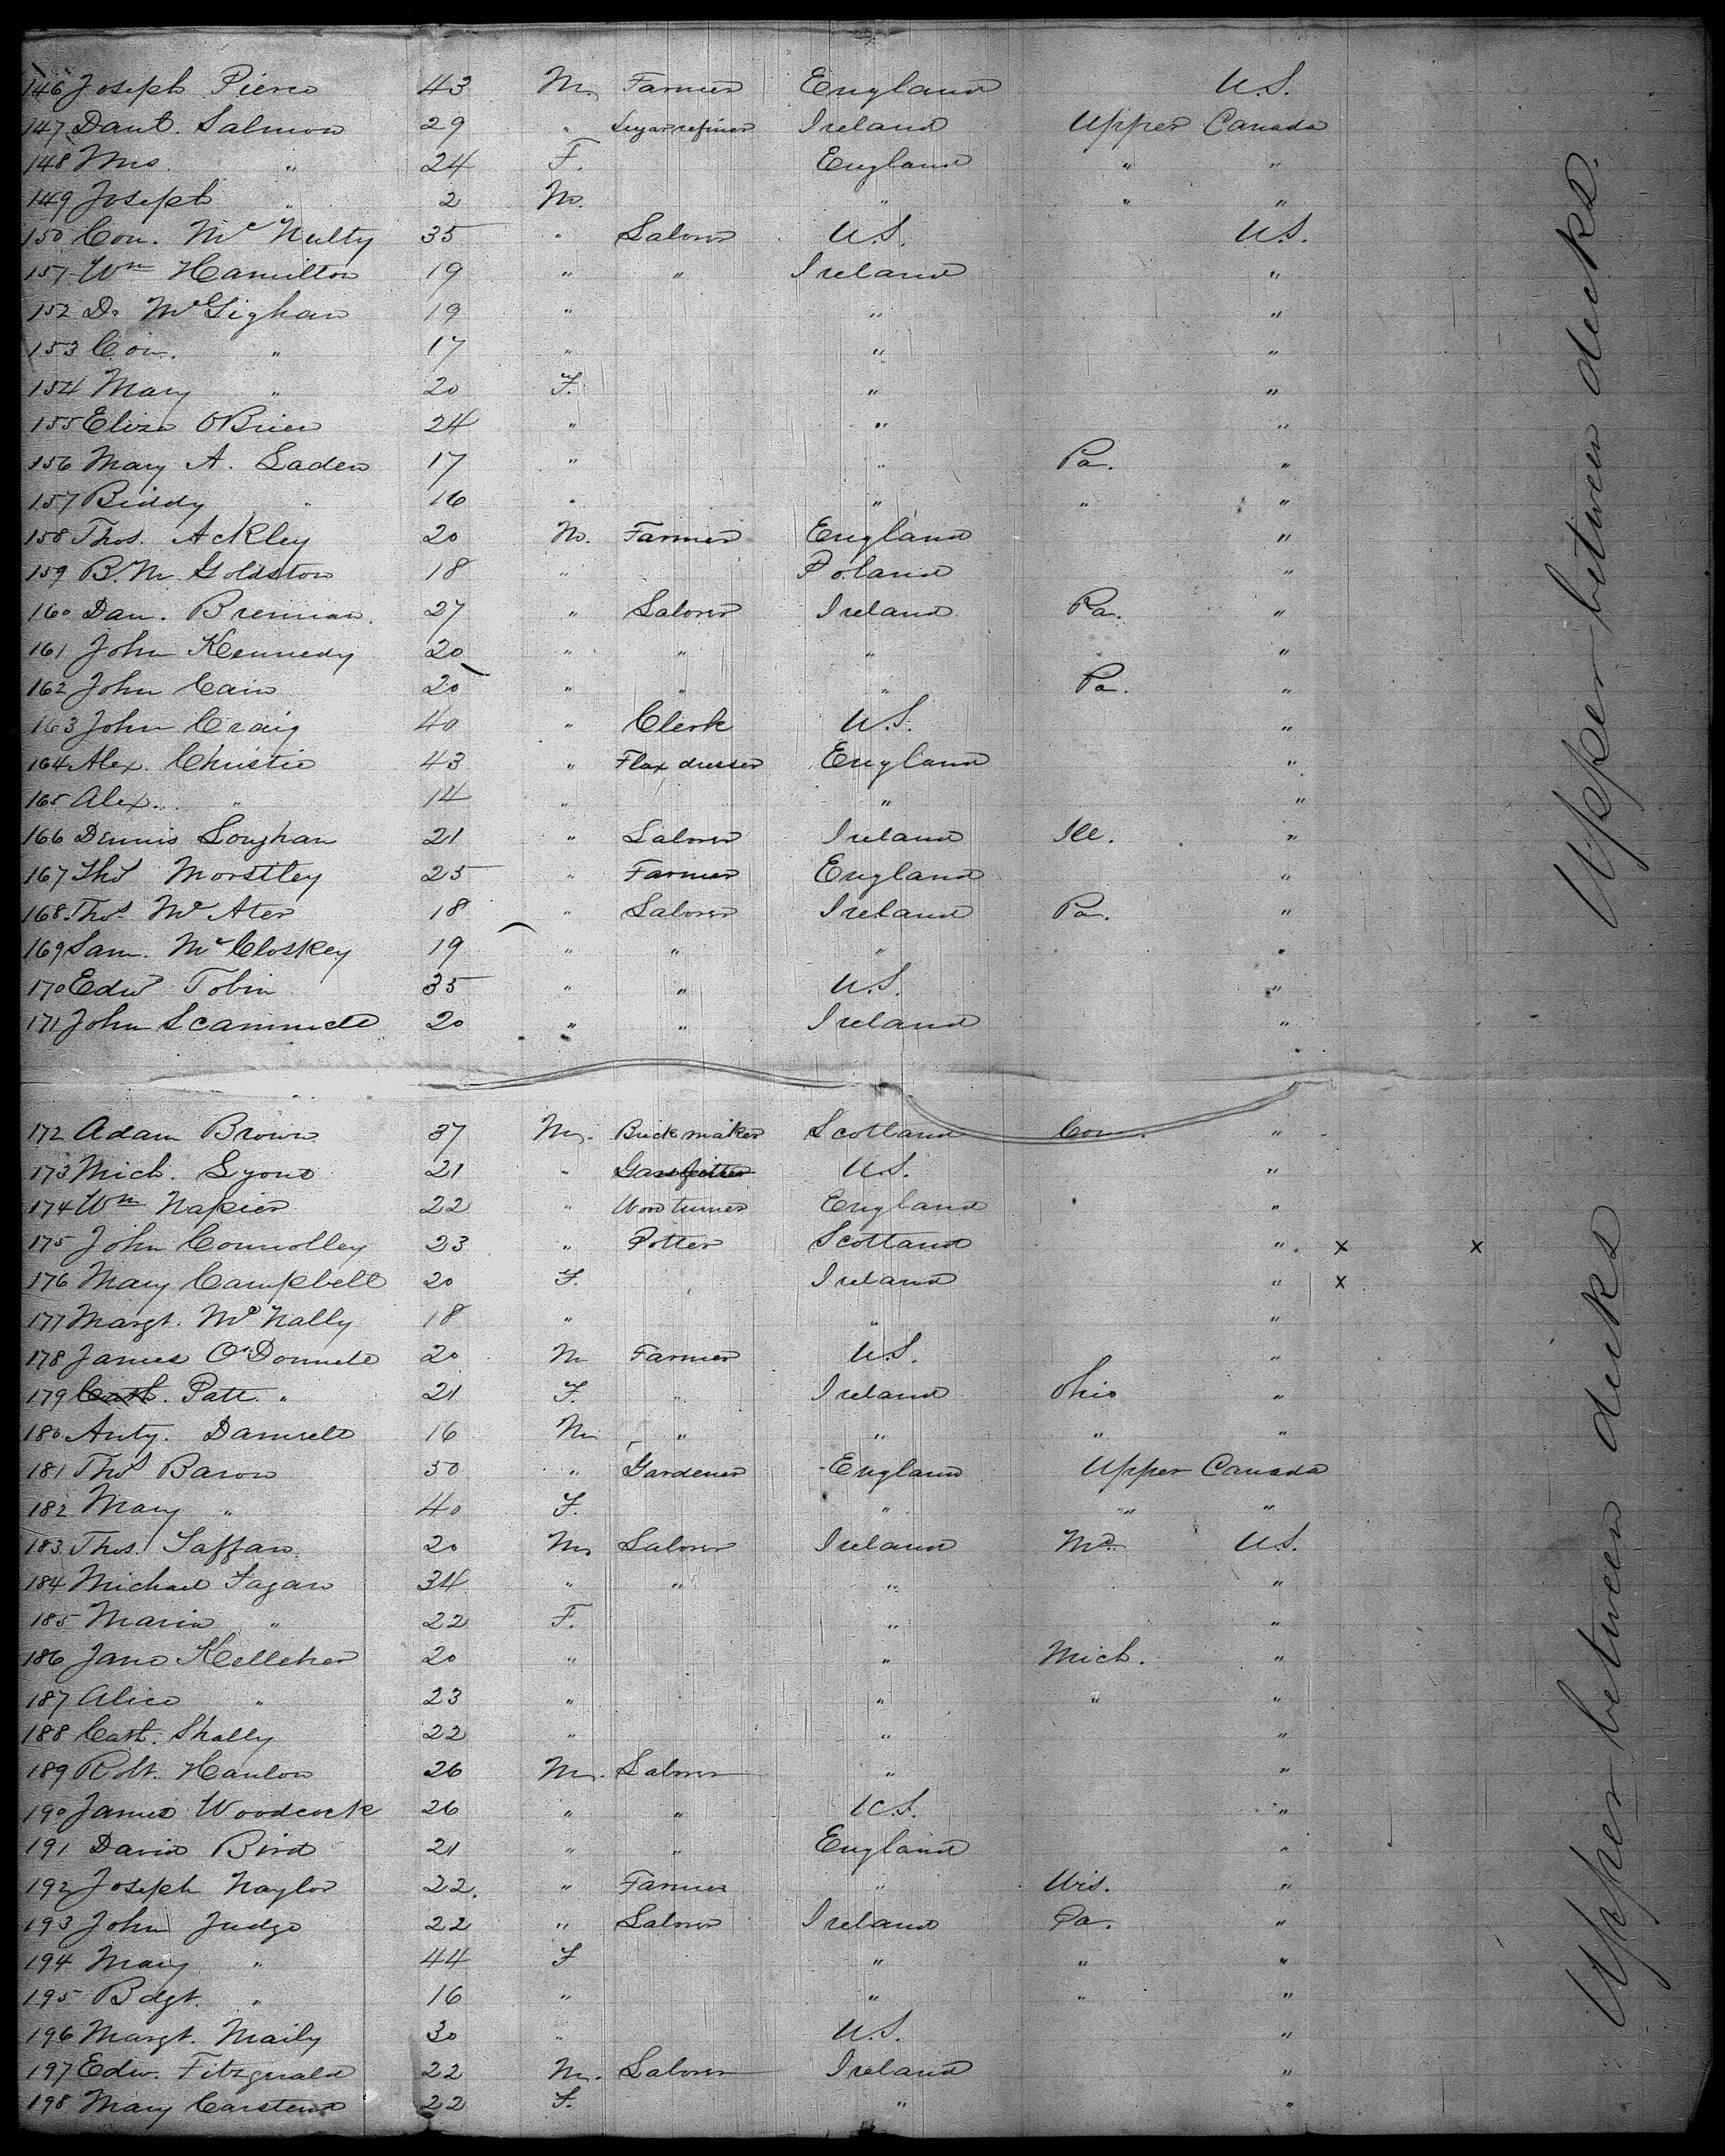 146 Joseph Pierce 43 M. Farmer England U.S.
147 Danl. Salmon 29 " Sugar refiner Ireland Upper Canada
148 Mrs " 24 F. England " "
149 Joseph " 2 M. " " "
150 Con. McNulty 35 " Laborer U.S. U.S.
151 Wm Hamilton 19 " " Ireland "
152 D. McGighan 19 " " "
153 Con. " 17 " " "
154 Mary " 20 F. " "
155 Eliza OBrien 24 " " "
156 Mary A. Laden 17 " " Pa. "
157 Biddy " 16 " " " "
158 Thos. Ackley 20 M. Farmer England "
159 B. M. Goldston 18 " Poland "
160 Dan. Brennan 27 " Laborer Ireland Pa. "
161 John Kennedy 20 " " " "
162 John Cain 20 " " " Pa. "
163 John Craig 40 " Clerk U.S. "
164 Alex. Christie 43 " Flax dresser England "
165 Alex. " 14 " " "
166 Dennis Loughan 21 " Laborer Ireland Ill. "
167 Thos Morstley 25 " Farmer England "
168 Thos McAter 18 " Laborer Ireland Pa. "
169 Sam. McCloskey 19 " " " "
170 Edwd Tobin 35 " " U.S. "
171 John Scammell 20 " " Ireland "
Upper between decks.
172 Adam Brown 37 M. Brick maker Scotland Con. "
173 Mich. Lyons 21 " U.S. "
174 Wm Napier 22 " Wood turner England "
175 John Connolley 23 " Potter Scotland " x x
176 Mary Campbell 20 F. Ireland " x
177 Margt. McNally 18 " " "
178 James O'Donnell 20 M Farmer U.S. "
179 Cath. Patt. " 21 F. " Ireland Ohio "
180 Anty. Damrell 16 M " " " "
181 Thos Baron 50 " Gardener England Upper Canada
182 Mary " 40 F. " " "
183 Thos. Taffan 20 M Laborer Ireland Md. U.S.
184 Michael Fagan 34 " " " "
185 Maria " 22 F. " "
186 Jane Kelleher 20 " " Mich. "
187 Alice " 23 " " " "
188 Cath. Shally 22 " " "
189 Robt. Hanlon 26 M. Laborer " "
190 James Woodcock 26 " " U.S. "
191 David Bird 21 " " England "
192 Joseph Naylor 22. " Farmer " Wis. "
193 John Judge 22 " Laborer Ireland Pa. "
194 Mary " 44 F " " "
195 Bdgt. " 16 " " " "
196 Margt. Maily 30 " U.S. "
197 Edw. Fitzgerald 22 M. Laborer Ireland "
198 Mary Carstens 22 F. " "
Upper between decks